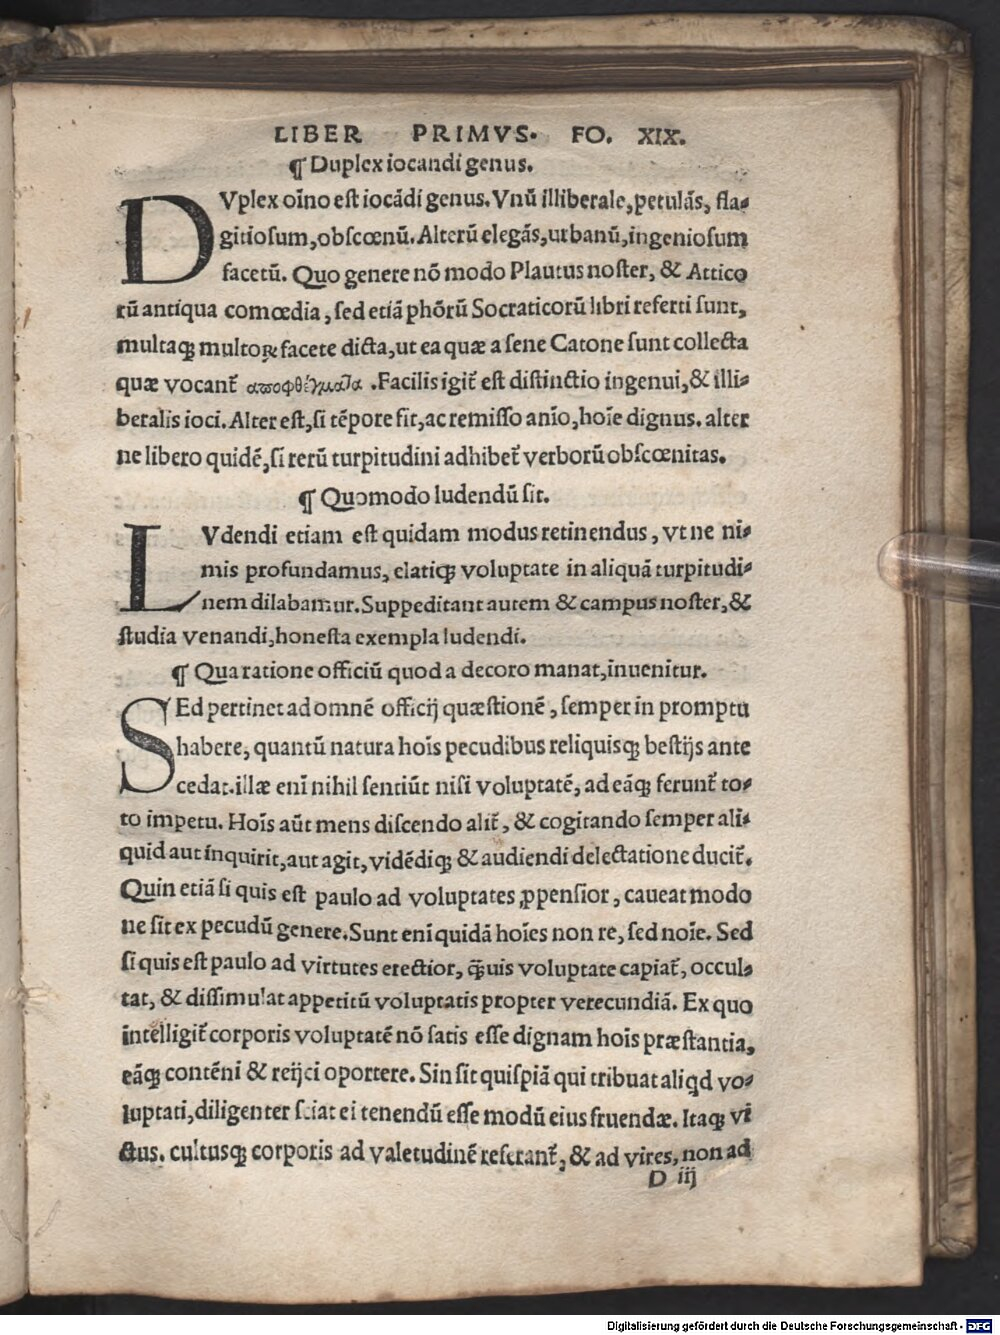 LIBER PRIMVS. FO. XIX.
¶ Duplex iocandi genus.
DVplex oĩno est iocãdi genus. Vnũ illiberale, petulãs, fla⸗
gitiosum, obscœnũ. Alterũ elegãs, urbanũ, ingeniosum
facetũ. Quo genere nõ modo Plautus noster, & Attico
rũ antiqua comœdia, sed etiã phõrũ Socraticorũ libri referti sunt,
multaqꝫ multoꝝ facete dicta, ut ea quæ a sene Catone sunt collecta
quæ vocant᷑ αποφθέγματα .Facilis igit᷑ est distinctio ingenui, & illi⸗
beralis ioci. Alter est, si tẽpore fit, ac remisso anĩo, hoĩe dignus. alter
ne libero quidẽ, si rerũ turpitudini adhibet᷑ verborũ obscœnitas.
¶ Quomodo ludendũ sit.
LVdendi etiam est quidam modus retinendus, vt ne ni⸗
mis profundamus, elatiqꝫ voluptate in aliquã turpitudi⸗
nem dilabamur. Suppeditant autem & campus noster, &
studia venandi, honesta exempla ludendi.
¶ Qua ratione officiũ quod a decoro manat, inuenitur.
SEd pertinet ad omnẽ officij quæstionẽ, semper in promptu
habere, quantũ natura hoĩs pecudibus reliquisqꝫ bestijs ante
cedat. illæ enĩ nihil sentiũt nisi voluptatẽ, ad eãqꝫ ferunt᷑ to⸗
to impetu. Hoĩs aũt mens discendo alit᷑, & cogitando semper ali⸗
quid aut inquirit, aut agit, vidẽdiqꝫ & audiendi delectatione ducit᷑.
Quin etiã si quis est paulo ad voluptates ꝓpensior, caueat modo
ne sit ex pecudũ genere. Sunt enĩ quidã hoĩes non re, sed noĩe. Sed
si quis est paulo ad virtutes erectior, q̃uis voluptate capiat᷑, occul⸗
tat, & dissimulat appetitũ voluptatis propter verecundiã. Ex quo
intelligit᷑ corporis voluptatẽ nõ satis esse dignam hoĩs præstantia,
eãqꝫ contẽni & reijci oportere. Sin sit quispiã qui tribuat aliqd vo⸗
luptati, diligenter sciat ei tenendũ esse modũ eius fruendæ. Itaqꝫ vi
ctus. cultusqꝫ corporis ad valetudinẽ referant᷑, & ad vires, non ad
D iij
Digitalisierung gefördert durch die Deutsche Forschungsgemeinschaft - DFG